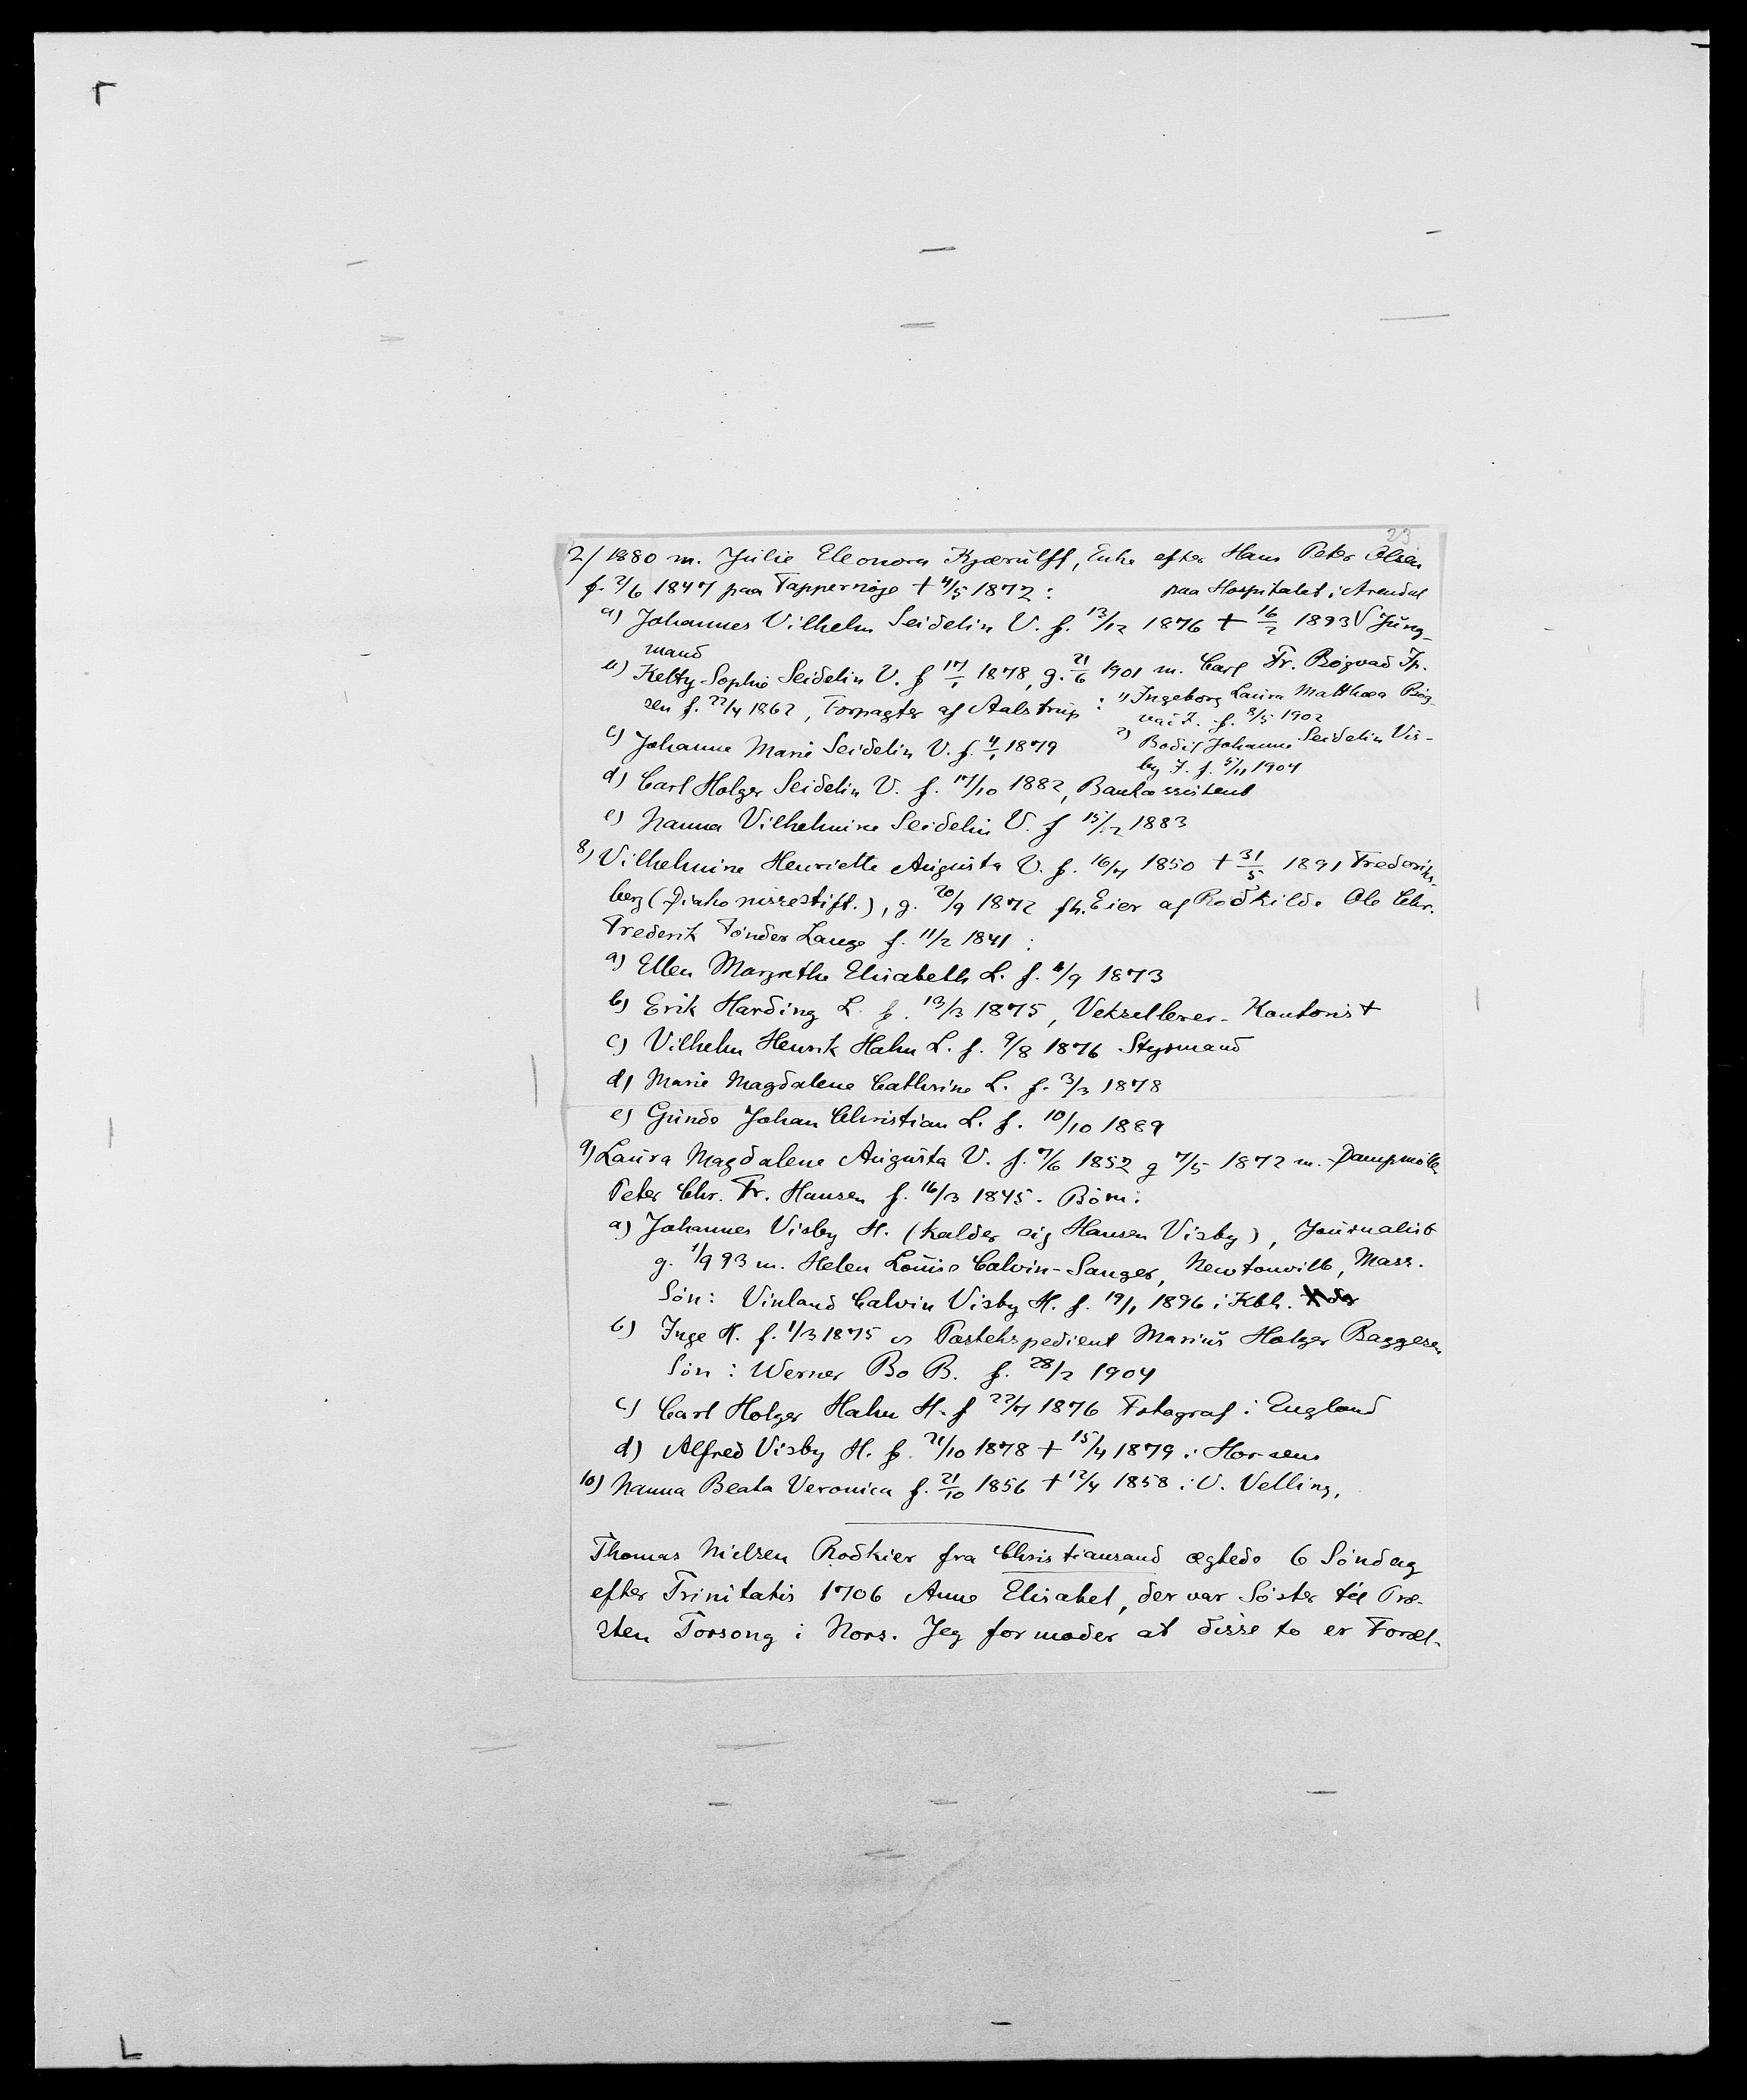 23
2/ 1880 m. Julie Eleonora Kjærulff, Enke efter Hans Peter Olsen
f. 2/6 1847 paa Tappernøje † 4/5 1872 :
paa Hospitalet i Arendal
a) Johannes Vilhelm Seidelin V. f. 13/12 1876 † 16/2 1893 V Jung-
mand
b) Ketty Sophie Seidelin V. f 17/1 1878, g. 21/6 1901 m. Carl Fr. Bøgvad
sen f. 22/4 1862, Forpagter af Aalstrup : 1) Ingeborg Laura Matthæa Bøg-
vad J. f. 8/5 1902
c) Johanne Marie Seidelin V. f. 4/1 1879
2) Bodil Johanne Seidelin Vis-
by J. f. 5/11 1904
d) Carl Holger Seidelin V. f. 17/10 1882, Bankassistent
e) Nanna Vilhelmine Seidelin V. f 15/12 1883
8) Vilhelmine Henriette Augusta V. f. 16/7 1850 † 31/5 1891 Frederiks-
berg (Diakonissestift.), g. 20/9 1872 fh. Eier af Rodkilde Ole Chr.
Frederik Tønder Lange f. 11/2 1841 :
a) Ellen Margrethe Elisabeth L. f. 4/9 1873
b) Erik Harding L. f. 13/3 1875, Vekselerer-Kontorist
c) Vilhelm Henrik Hahn L. f. 9/8 1876 Styrmand
d) Marie Magdalene Cathrine L. f. 3/3 1878
e) Gunde Johan Christian L. f. 10/10 1889
9) Laura Magdalene Augusta V. f. 7/6 1852 g 7/5 1872 m. Dampmøller
Peter Chr. Fr. Hansen f. 16/3 1845. Børn:
a) Johannes Visby H. (kalder sig Hansen Visby), Journalist
g. 1/9 93 m. Helen Louise Calvin-Sanger, Newtonville, Mass.
Søn: Vinland Calvin Visby H. f. 19/1 1896 i Kbh.
b) Inge H. f. 1/3 1875 ∞ Postekspedient Marius Holger Baggesen
Søn : Werner Bo B. f. 28/2 1904
c) Carl Holger Hahn H. f 22/7 1876 Fotograf i England
d) Alfred Visby H. f. 21/10 1878 † 15/4 1879 i Horsens
10) Nanna Beata Veronica f. 21/10 1856 † 12/4 1858 i V. Velling.
Thomas Nielsen Rodkier fra Christiansand ægtede 6 Søndag
efter Trinitatis 1706 Anne Elisabet, der var Søster til Præ-
sten Torsong i Nors. Jeg formoder at disse to er Foræl-